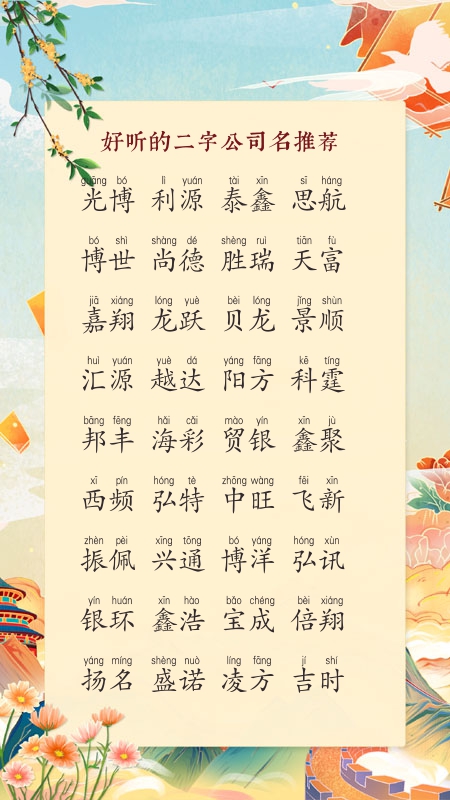 好听的二字公司名推荐
guāng bó lì yuán tài xīn sī háng
光博 利源 泰鑫 思航
bó shì shàng dé shèng ruì tiān fù
博世 尚德 胜瑞 天富
jiā xiáng lóng yuè bèi lóng jǐng shùn
嘉翔 龙跃 贝龙 景顺
huì yuán yuè dá yáng fāng kē tíng
汇源 越达 阳方 科霆
bāng fēng hǎi cǎi mào yín xīn jù
邦丰 海彩 贸银 鑫聚
xī pín hóng tè zhōng wàng fēi xīn
西频 弘特 中旺 飞新
zhèn pèi xīng tōng bó yáng hóng xùn
振佩 兴通 博洋 弘讯
yín huán xīn hào bǎo chéng bèi xiáng
银环 鑫浩 宝成 倍翔
yáng míng shèng nuò líng fāng jí shí
扬名 盛诺 凌方 吉时